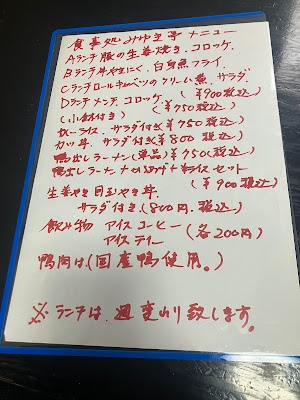 食事処 みやま亭 メニュー
Aランチ 豚の生姜焼き、コロッケ、
Bランチ 牛やきにく、白身魚フライ、
Cランチ ロールキャベツのクリーム煮、サラダ、
Dランチ メンチ、コロッケ、 (¥900税込)
(小鉢付き) (¥750税込)
ライス、サラダ付き¥750(税込)
カツ丼、サラダ付き¥800(税込)
鴨出しラーメン(単品)¥750(税込)
鴨出しラーメン +ライスセット
(¥900税込)
生姜やき目玉やき丼、
サラダ付き(800円、税込)
飲み物 アイスコーヒー (各200円)
アイスティー
鴨肉は、(国産鴨使用。)
※ランチは、週変わり致します。